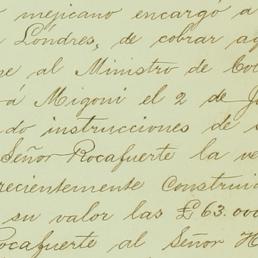 mejicano encargó a
Lóndres, de cobrar
al Ministro de
á Migoni el 2 de
do instrucciones de
Señor Rocafuerte la
recientemente
su valor las £63.000
Rocafuerte al Señor H